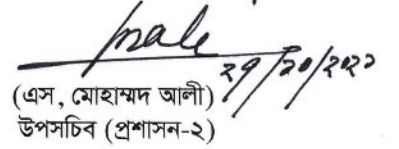 ২৭/১০/২০২২
(এস, মোহাম্মদ আলী)
উপসচিব (প্রশাসন-২)